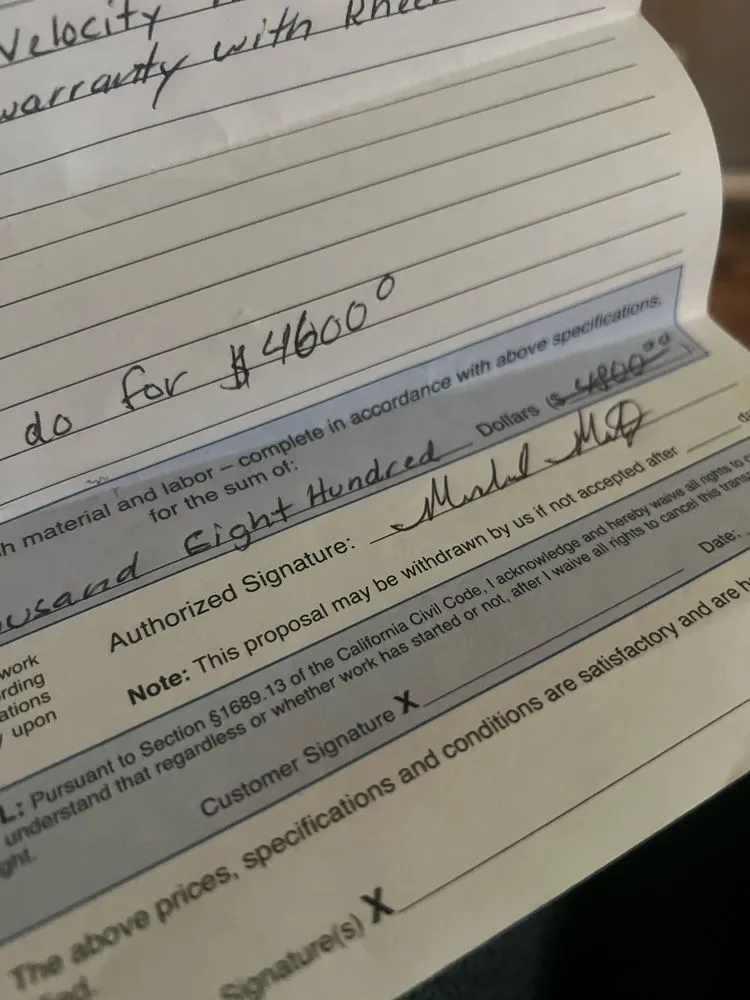 Velocity
warranty with Rhee
do for $4600⁰
h material and labor – complete in accordance with above specifications,
for the sum of:
ousand Eight Hundred Dollars ($ 4800⁰⁰)
Authorized Signature:
Note: This proposal may be withdrawn by us if not accepted after
work
rding
ations
upon
L: Pursuant to Section §1689.13 of the California Civil Code, I acknowledge and hereby waive all rights to c
understand that regardless or whether work has started or not, after I waive all rights to cancel this transa
ght.
Customer Signature X
Date:
The above prices, specifications and conditions are satisfactory and are h
ied.
Signature(s) X